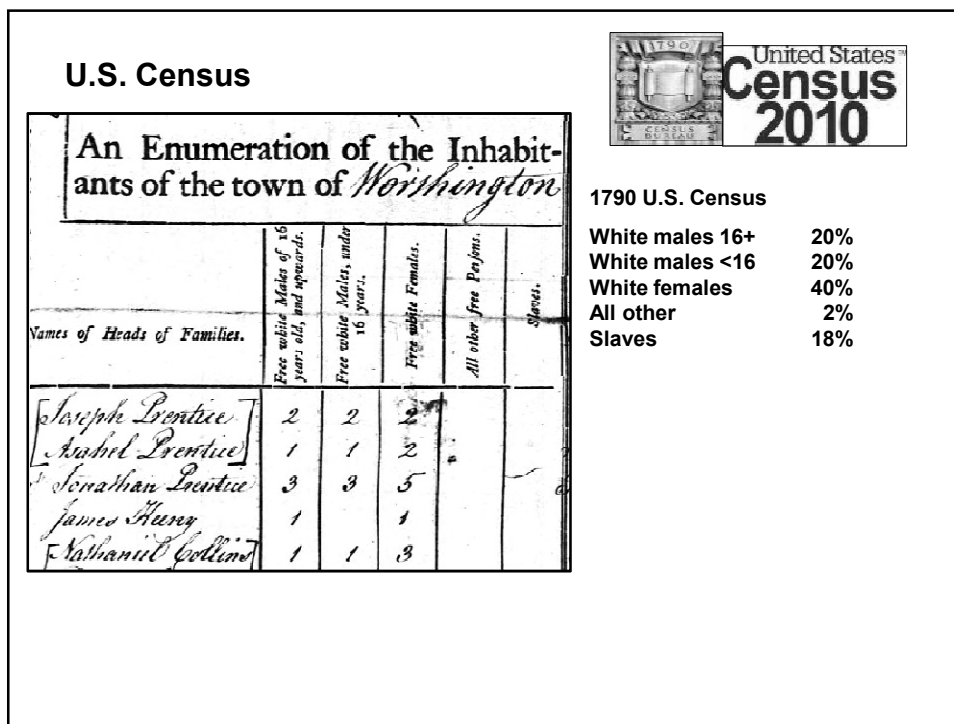 U.S. Census
1790
CENSUS
BUREAU
United States™
Census
2010
An Enumeration of the Inhabit-
ants of the town of Worshington
Names of Heads of Families.
Free white Males of 16
years old, and upwards.
Free white Males, under
16 years.
Free white Females.
All other free Persons.
Slaves.
Joseph Prentice 2 2 2
Asahel Prentice 1 1 2
Jonathan Prentice 3 3 5
James Keeny 1 1
Nathaniel Collins 1 1 3
1790 U.S. Census
White males 16+ 20%
White males <16 20%
White females 40%
All other 2%
Slaves 18%